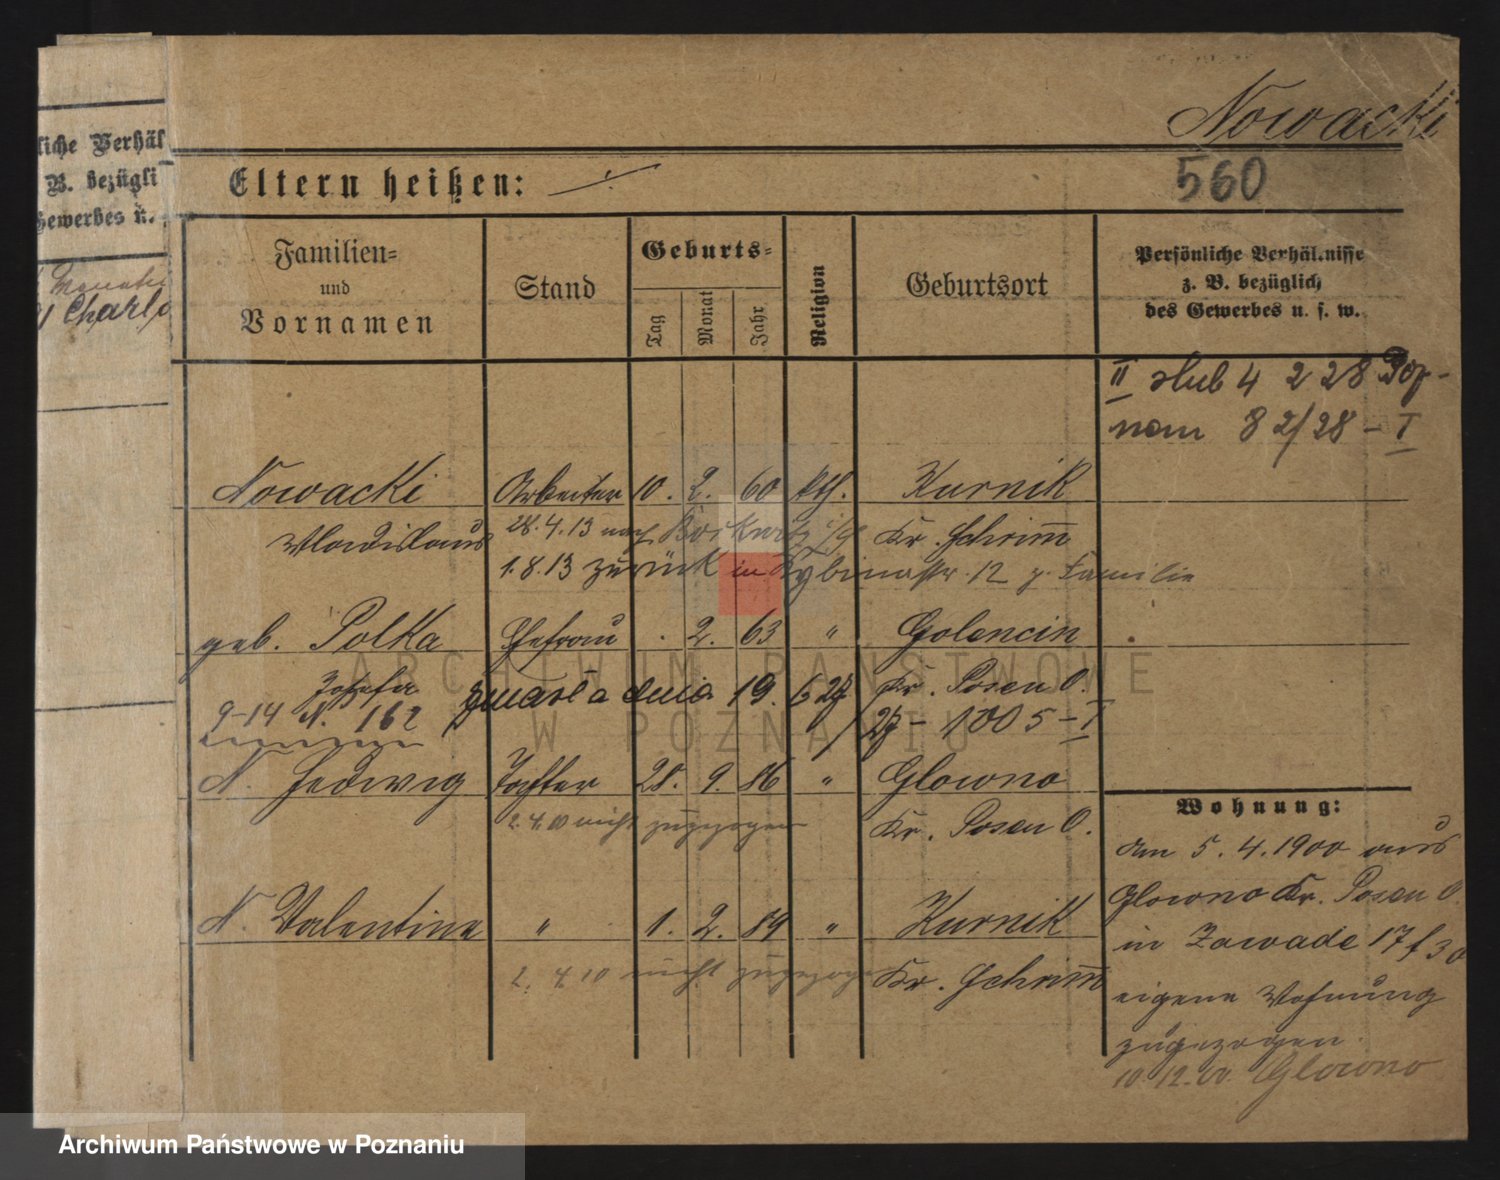 Nowacki
560
liche Verhäl
B. bezügli
Gewerbes u.
Eltern heißen: ·/·
Familien=
und
Vornamen
Stand
Geburts=
Tag
Monat
Jahr
Religion
Geburtsort
Persönliche Verhältnisse
z. B. bezüglich
des Gewerbes u. s. w.
II slub 4 2 28
8 2/28 - I
Nowacki Arbeiter 10. 2. 60 kth. Kurnik
Wladislaus 28.4.13 nach Kr. Schrimm
1.8.13 zurück in Rybinastr. 12 z. Familie
geb. Polka Ehefrau . 2. 63 " Golencin
Josefa zmarła dnia 19. 6 27 Kr. Posen O.
9-14 N. 162 27 - 1005 - I
N. Hedwig Tochter 28. 9. 86 " Glowno
2.4.00 nicht zugezogen Kr. Posen O.
N. Valentine " 1. 2. 89 " Kurnik
2. 4. 00 nicht zugezogen Kr. Schrimm
Wohnung:
Am 5.4.1900 aus
Glowno Kr. Posen O.
in Zawade 17 f 30
eigene Wohnung
zugezogen.
10.12.00. Glowno
ARCHIWUM PAŃSTWOWE
W POZNANIU
Archiwum Państwowe w Poznaniu